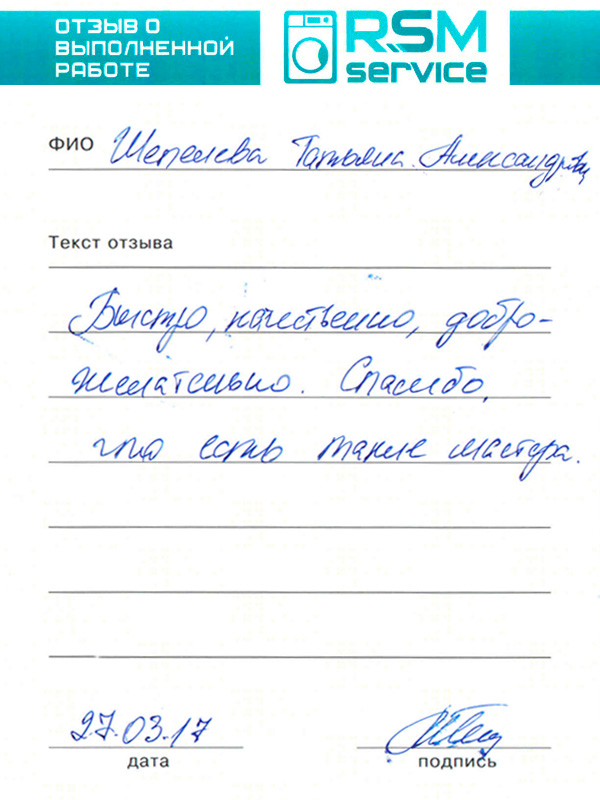 ОТЗЫВ О
ВЫПОЛНЕННОЙ
РАБОТЕ
RSM
service
ФИО Шепелева Татьяна Александровна
Текст отзыва
Быстро, качественно, добро-
желательно. Спасибо,
что есть такие мастера.
27.03.17
дата подпись